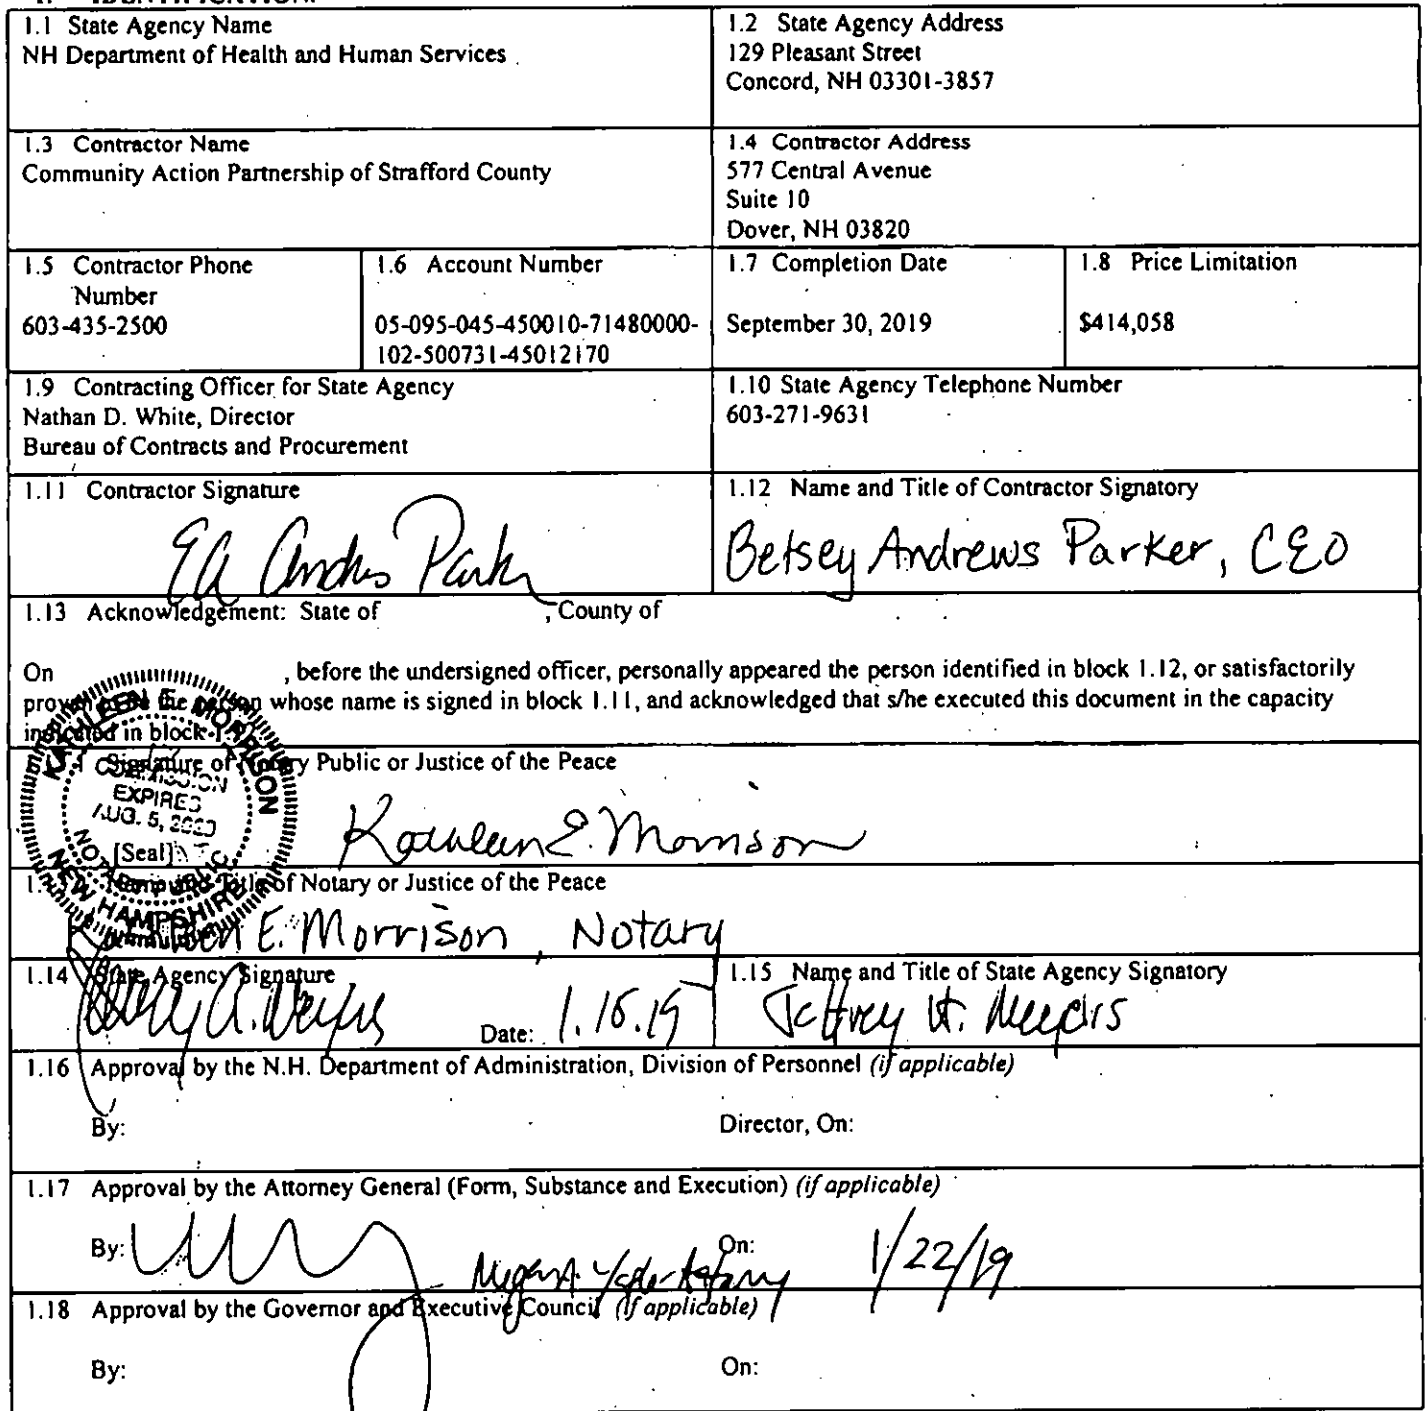 1.1 State Agency Name
NH Department of Health and Human Services
1.2 State Agency Address
129 Pleasant Street
Concord, NH 03301-3857
1.3 Contractor Name
Community Action Partnership of Strafford County
1.4 Contractor Address
577 Central Avenue
Suite 10
Dover, NH 03820
1.5 Contractor Phone
Number
603-435-2500
1.6 Account Number
05-095-045-450010-71480000-
102-500731-45012170
1.7 Completion Date
September 30, 2019
1.8 Price Limitation
$414,058
1.9 Contracting Officer for State Agency
Nathan D. White, Director
Bureau of Contracts and Procurement
1.10 State Agency Telephone Number
603-271-9631
1.11 Contractor Signature
1.12 Name and Title of Contractor Signatory
Betsey Andrews Parker, CEO
1.13 Acknowledgement: State of , County of
On , before the undersigned officer, personally appeared the person identified in block 1.12, or satisfactorily
proven to be the person whose name is signed in block 1.11, and acknowledged that s/he executed this document in the capacity
indicated in block
Signature of Notary Public or Justice of the Peace
KATHLEEN E. MORRISON
COMMISSION
EXPIRES
AUG. 5, 2020
[Seal]
NOTARY PUBLIC
NEW HAMPSHIRE
Kathleen E. Morrison
Name and Title of Notary or Justice of the Peace
E. Morrison, Notary
1.14 State Agency Signature
Date:
1.15 Name and Title of State Agency Signatory
1.16 Approval by the N.H. Department of Administration, Division of Personnel (if applicable)
By: Director, On:
1.17 Approval by the Attorney General (Form, Substance and Execution) (if applicable)
By: On: 1/22/19
1.18 Approval by the Governor and Executive Council (if applicable)
By: On: